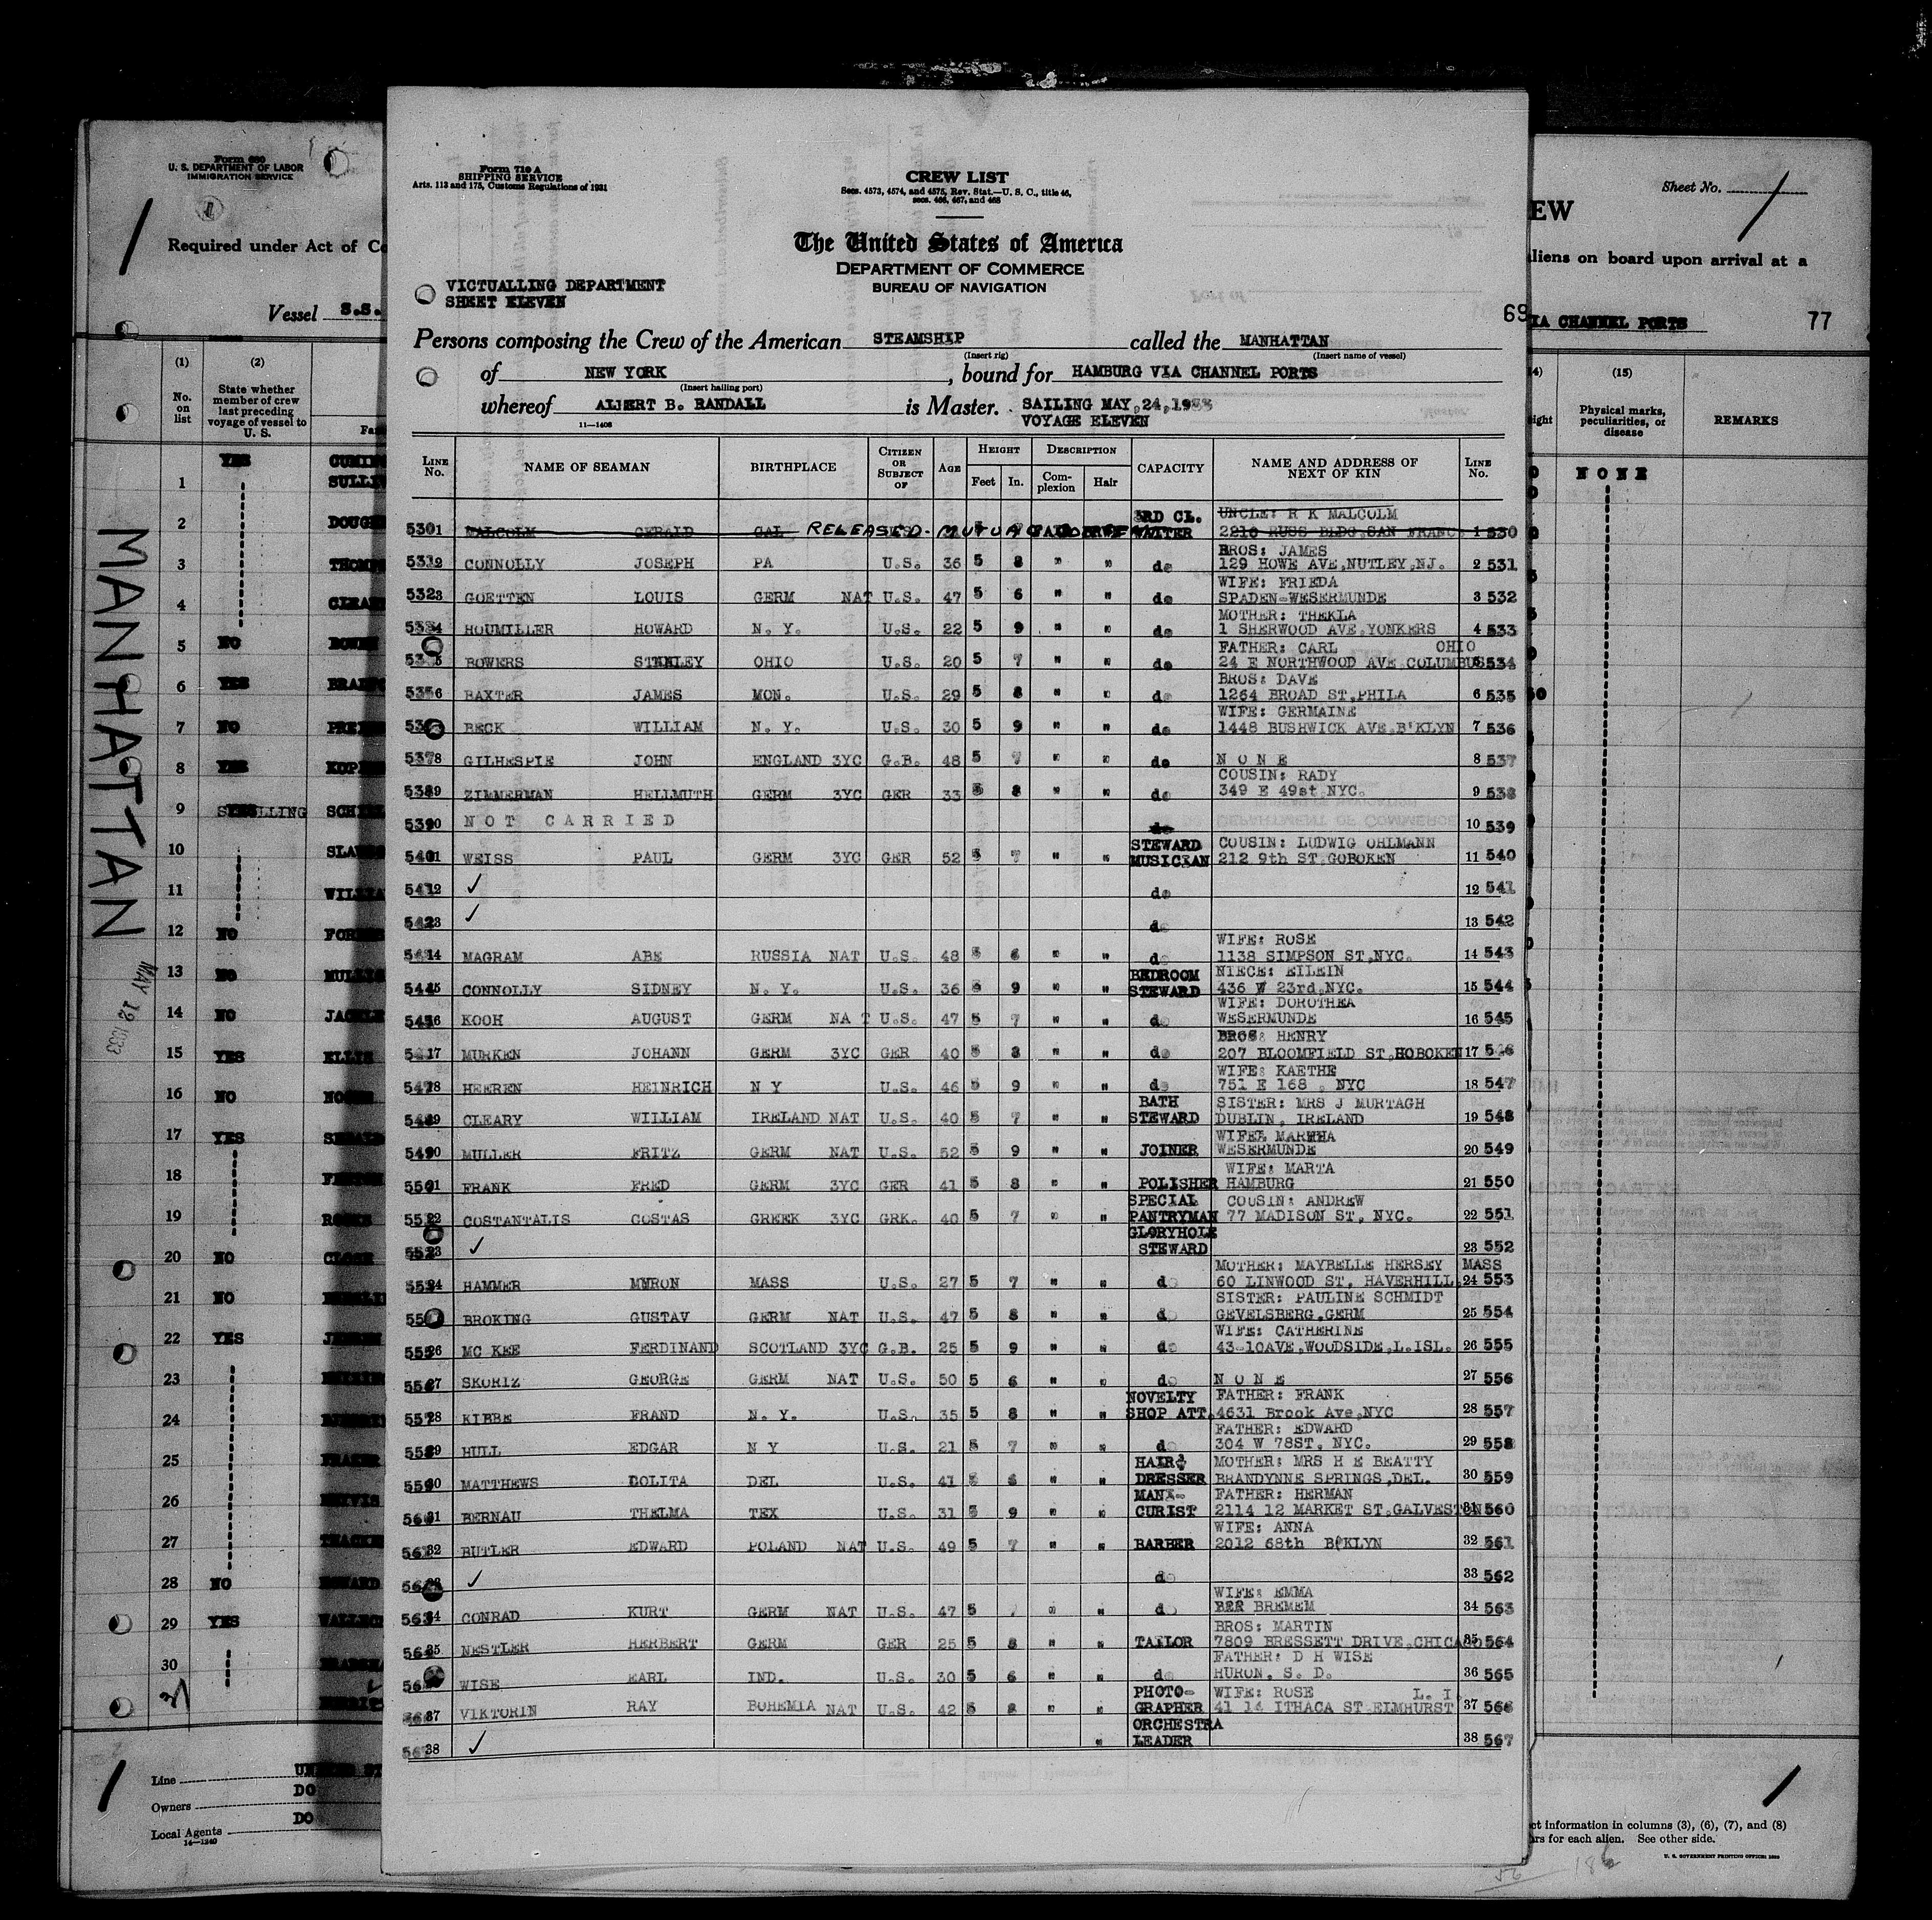 Form 710 A
SHIPPING SERVICE
Arts. 113 and 175, Customs Regulations of 1931
CREW LIST
Secs. 4573, 4574, and 4575, Rev. Stat.—U. S. C., title 46,
secs. 466, 467, and 468
The United States of America
DEPARTMENT OF COMMERCE
BUREAU OF NAVIGATION
VICTUALLING DEPARTMENT
SHEET ELEVEN
69
Persons composing the Crew of the American STEAMSHIP called the MANHATTAN
(Insert rig) (Insert name of vessel)
of NEW YORK, bound for HAMBURG VIA CHANNEL PORTS
(Insert hailing port)
whereof ALBERT B. RANDALL is Master. SAILING MAY, 24, 1933
11—1406 VOYAGE ELEVEN
LINE No. NAME OF SEAMAN BIRTHPLACE CITIZEN OR SUBJECT OF AGE HEIGHT Feet In. DESCRIPTION Complexion Hair CAPACITY NAME AND ADDRESS OF NEXT OF KIN LINE No.
3RD CL. UNCLE: R K MALCOLM
MALCOLM GERALD CAL RELEASED - MUTUAL WAITER 2210 RUSS BLDG SAN FRANC 1 530
BROS: JAMES
CONNOLLY JOSEPH PA U.S. 36 5 8 " " do 129 HOWE AVE,NUTLEY,NJ. 2 531
WIFE: FRIEDA
GOETTEN LOUIS GERM NAT U.S. 47 5 6 " " do SPADEN-WESERMUNDE 3 532
MOTHER: THEKLA
HOUMILLER HOWARD N. Y. U.S. 22 5 9 " " do 1 SHERWOOD AVE,YONKERS 4 533
FATHER: CARL OHIO
BOWERS STANLEY OHIO U.S. 20 5 7 " " do 24 E NORTHWOOD AVE COLUMBUS 534
BROS: DAVE
BAXTER JAMES MON. U.S. 29 5 8 " " do 1264 BROAD ST.PHILA 6 535
WIFE: GERMAINE
BECK WILLIAM N. Y. U.S. 30 5 9 " " do 1448 BUSHWICK AVE,B'KLYN 7 536
GILHESPIE JOHN ENGLAND 3YC G.B. 48 5 7 " " do N O N E 8 537
COUSIN: RADY
ZIMMERMAN HELLMUTH GERM 3YC GER 33 5 8 " " do 349 E 49st.NYC. 9 538
N O T C A R R I E D do 10 539
STEWARD COUSIN: LUDWIG OHLMANN
WEISS PAUL GERM 3YC GER 52 5 7 " " MUSICIAN 212 9th ST,GOBOKEN 11 540
✓ do 12 541
✓ do 13 542
WIFE: ROSE
MAGRAM ABE RUSSIA NAT U.S. 48 5 6 " " do 1138 SIMPSON ST,NYC. 14 543
BEDROOM NIECE: EILEIN
CONNOLLY SIDNEY N. Y. U.S. 36 5 9 " " STEWARD 436 W 23rd,NYC. 15 544
WIFE: DOROTHEA
KOOH AUGUST GERM NA T U.S. 47 5 7 " " do WESERMUNDE 16 545
BROS: HENRY
MURKEN JOHANN GERM 3YC GER 40 5 8 " " do 207 BLOOMFIELD ST,HOBOKEN 17 546
WIFE: KAETHE
HEEREN HEINRICH N Y U.S. 46 5 9 " " do 751 E 168 . NYC 18 547
BATH SISTER: MRS J MURTAGH
CLEARY WILLIAM IRELAND NAT U.S. 40 5 7 " " STEWARD DUBLIN, IRELAND 19 548
WIFE: MARTHA
MULLER FRITZ GERM NAT U.S. 52 5 9 " " JOINER WESERMUNDE 20 549
WIFE: MARTA
FRANK FRED GERM 3YC GER 41 5 8 " " POLISHER HAMBURG 21 550
SPECIAL COUSIN: ANDREW
COSTANTALIS COSTAS GREEK 3YC GRK. 40 5 7 " " PANTRYMAN 77 MADISON ST, NYC. 22 551
GLORYHOLE
✓ STEWARD 23 552
MOTHER: MAYBELLE HERSEY MASS
HAMMER MYRON MASS U.S. 27 5 7 " " do 60 LINWOOD ST, HAVERHILL, 24 553
SISTER: PAULINE SCHMIDT
BROKING GUSTAV GERM NAT U.S. 47 5 8 " " do GEVELSBERG,GERM 25 554
WIFE: CATHERINE
MC KEE FERDINAND SCOTLAND 3YC G.B. 25 5 9 " " do 43-10AVE,WOODSIDE,L.ISL. 26 555
SKORIZ GEORGE GERM NAT U.S. 50 5 6 " " do N O N E 27 556
NOVELTY FATHER: FRANK
KIBBE FRAND N. Y. U.S. 35 5 8 " " SHOP ATT. 4631 Brook Ave,NYC 28 557
FATHER: EDWARD
HULL EDGAR N Y U.S. 21 5 7 " " do 304 W 78ST, NYC. 29 558
HAIR- MOTHER: MRS H E BEATTY
MATTHEWS LOLITA DEL U.S. 41 5 6 " " DRESSER BRANDYNNE SPRINGS,DEL. 30 559
MANI- FATHER: HERMAN
BERNAU THELMA TEX U.S. 31 5 9 " " CURIST 2114 12 MARKET ST,GALVESTON 560
WIFE: ANNA
BUTLER EDWARD POLAND NAT U.S. 49 5 7 " " BARBER 2012 68th B'KLYN 32 561
✓ do 33 562
WIFE: EMMA
CONRAD KURT GERM NAT U.S. 47 5 7 " " do BREMEM 34 563
BROS: MARTIN
NESTLER HERBERT GERM GER 25 5 8 " " TAILOR 7809 BRESSETT DRIVE,CHICAGO 564
FATHER: D H WISE
WISE EARL IND. U.S. 30 5 6 " " do HURON, S. D. 36 565
PHOTO- WIFE: ROSE L. I.
VIKTORIN RAY BOHEMIA NAT U.S. 42 5 8 " " GRAPHER 41 14 ITHACA ST ELMHURST 37 566
ORCHESTRA
38 ✓ " LEADER 38 567
Form 680
U. S. DEPARTMENT OF LABOR
IMMIGRATION SERVICE
Required under Act of Co
Vessel S.S.
(1) (2)
No. on list
State whether member of crew last preceding voyage of vessel to U. S.
YES
1
2
3
4
5 NO
6 YES
7 NO
8 YES
9
10
11
12 NO
13 NO
14 NO
15 YES
16 NO
17 YES
18
19
20 NO
21 NO
22 YES
23
24
25
26
27
28 NO
29 YES
30
31
MANHATTAN
MAY 12 1933
Line
Owners DO
Local Agents DO
14—1240
Sheet No. 1
EW
aliens on board upon arrival at a
IA CHANNEL PORTS 77
(15)
Physical marks, peculiarities, or disease
REMARKS
N O N E
ct information in columns (3), (6), (7), and (8)
rs for each alien. See other side.
U. S. GOVERNMENT PRINTING OFFICE
56 186